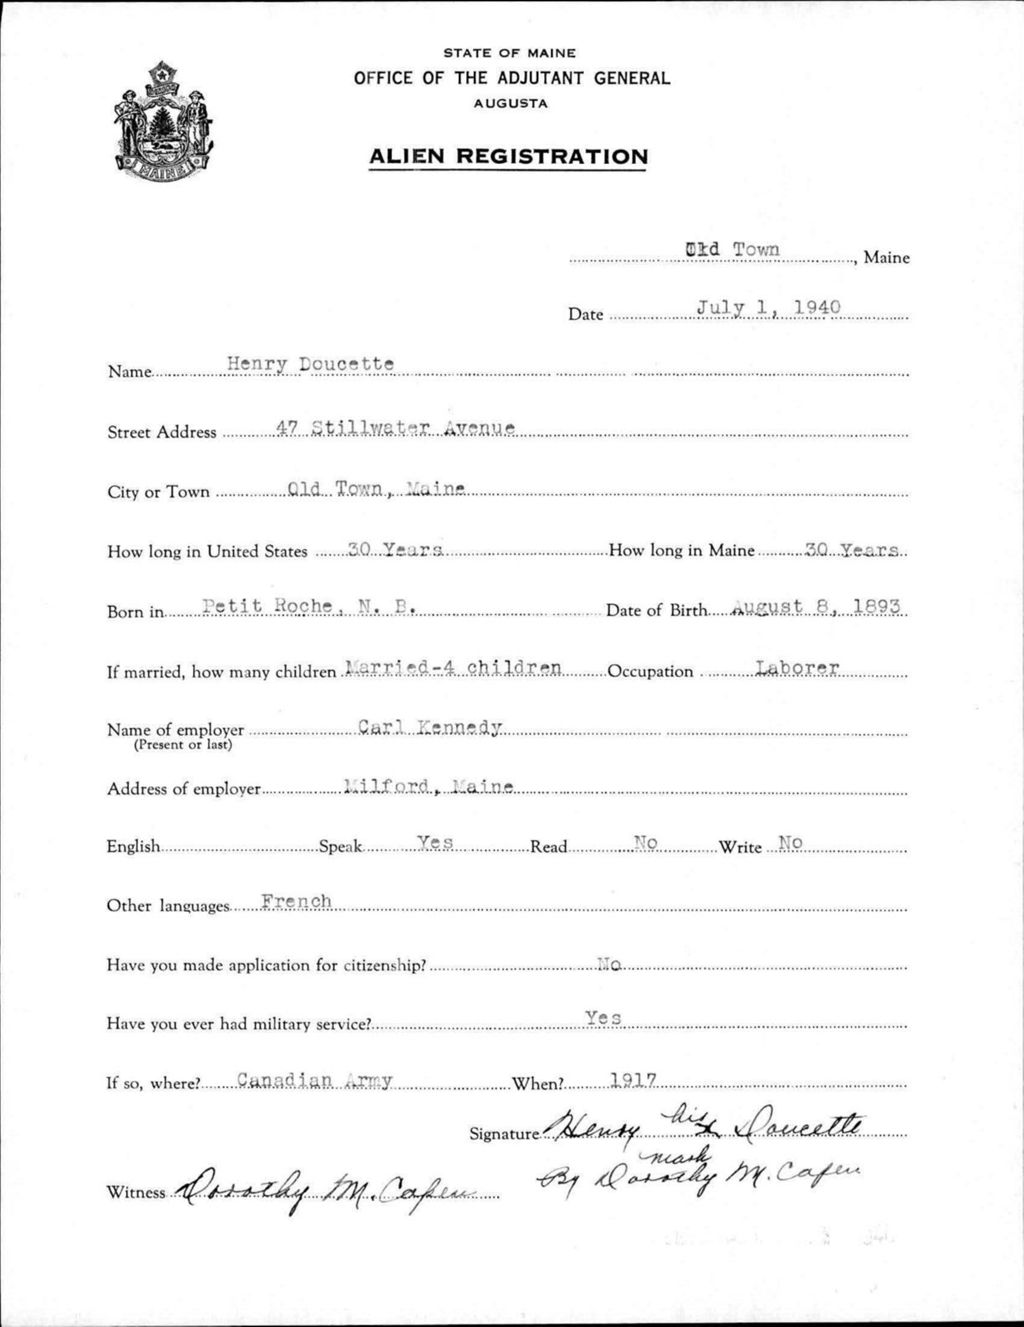 STATE OF MAINE
OFFICE OF THE ADJUTANT GENERAL
AUGUSTA
ALIEN REGISTRATION
MAINE
Old Town, Maine
Date July 1, 1940
Name Henry Doucette
Street Address 47 Stillwater Avenue
City or Town Old Town, Maine
How long in United States 30 Years How long in Maine 30 Years
Born in Petit Roche, N. B. Date of Birth August 8, 1893
If married, how many children Married-4 children Occupation Laborer
Name of employer Carl Kennedy
(Present or last)
Address of employer Milford, Maine
English Speak Yes Read No Write No
Other languages French
Have you made application for citizenship? No
Have you ever had military service? Yes
If so, where? Canadian Army When? 1917
Signature Henry his x Doucette
mark
Witness Dorothy M. Capen By Dorothy M. Capen